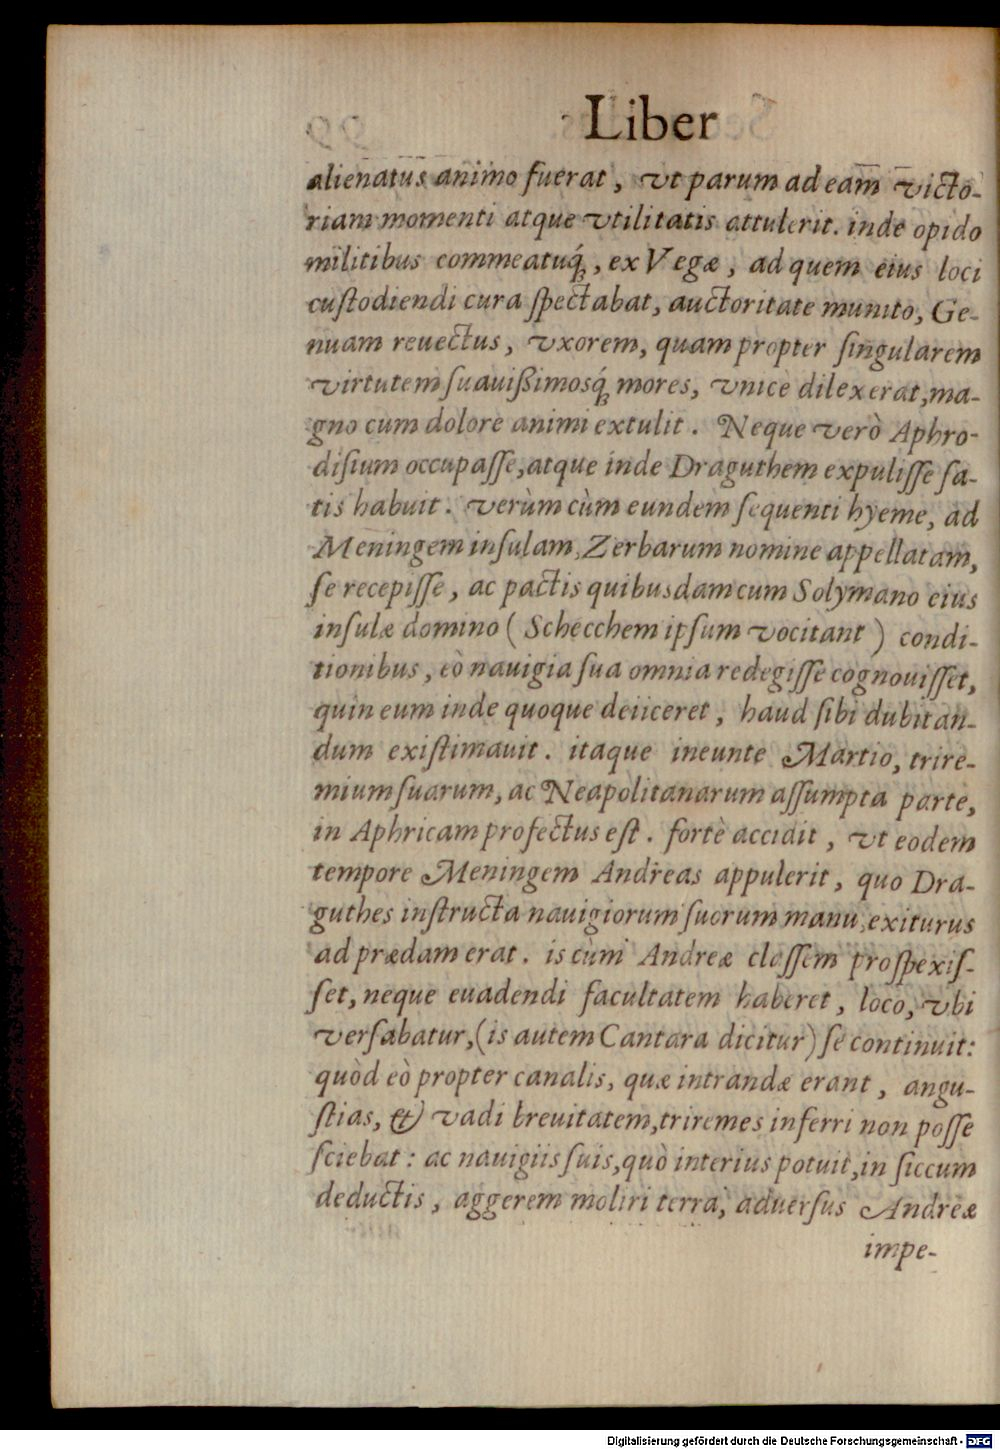 Liber
alienatus animo fuerat, vt parum ad eam victo-
riam momenti atque vtilitatis attulerit. inde opido
militibus commeatuq́;, ex Vegæ, ad quem eius loci
cuſtodiendi cura ſpectabat, auctoritate munito, Ge-
nuam reuectus, vxorem, quam propter ſingularem
virtutem ſuauißimosq́; mores, vnicè dilexerat, ma-
gno cum dolore animi extulit. Neque verò Aphro-
diſium occupaſſe, atque inde Draguthem expuliſſe ſa-
tis habuit. verùm cùm eundem ſequenti hyeme, ad
Meningem inſulam, Zerbarum nomine appellatam,
ſe recepiſſe, ac pactis quibusdam cum Solymano eius
inſulæ domino (Schecchem ipſum vocitant) condi-
tionibus, eò nauigia ſua omnia redegiſſe cognouiſſet,
quin eum inde quoque deiiceret, haud ſibi dubitan-
dum exiſtimauit. itaque ineunte Martio, trire-
mium ſuarum, ac Neapolitanarum aſſumpta parte,
in Aphricam profectus eſt. fortè accidit, vt eodem
tempore Meningem Andreas appulerit, quo Dra-
guthes inſtructa nauigiorum ſuorum manu, exiturus
ad prædam erat. is cùm Andreæ claſſem proſpexiſ-
ſet, neque euadendi facultatem haberet, loco, vbi
verſabatur, (is autem Cantara dicitur) ſe continuit:
quòd eò propter canalis, quæ intrandæ erant, angu-
ſtias, & vadi breuitatem, triremes inferri non poſſe
ſciebat: ac nauigiis ſuis, quò interius potuit, in ſiccum
deductis, aggerem moliri terra, aduerſus Andreæ
impe-
Digitalisierung gefördert durch die Deutsche Forschungsgemeinschaft - DFG